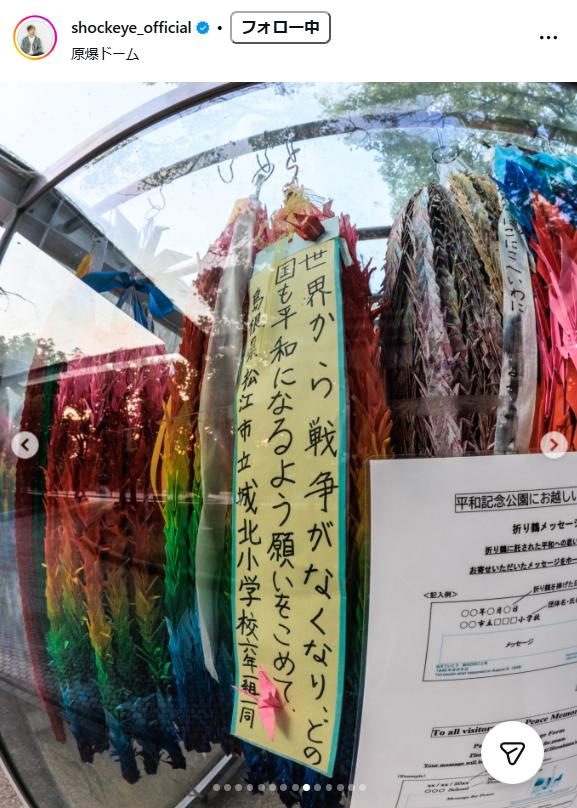 shockeye_official • フォロー中
原爆ドーム
世界から戦争がなくなり、どの
国も平和になるよう願いをこめて、
島根県松江市立城北小学校六年一組一同
平和記念公園にお越し
折り鶴メッセージ
折り鶴に託された平和への思い
お寄せいただいたメッセージをホー
<記入例>
折り鶴を捧げた
○○年○月○日
団体名・氏
○○市立□□□小学校
メッセージ
To all visitor
Peace Memor
Form
Your message will
(Example)
xx / xx / 20xx
○○○ School